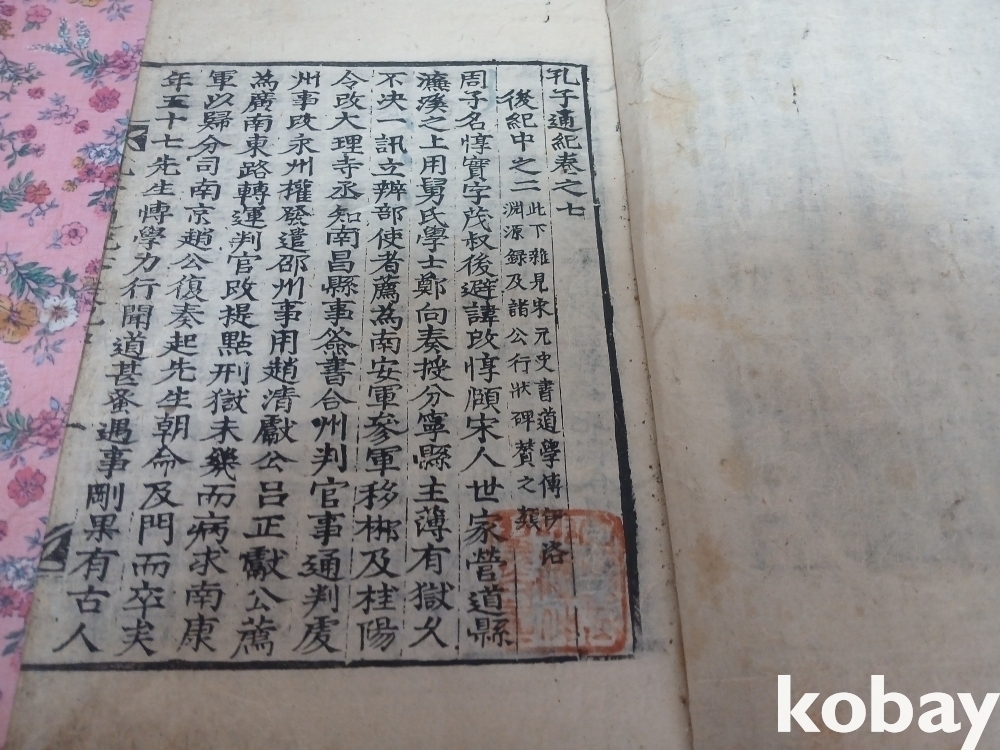 孔子通紀卷之七
後紀中之二
此下雜見宋元史書道學傳伊洛
淵源録及諸公行狀碑賛之類
周子名惇實字茂叔後避諱改惇頤宋人世家營道縣
濂溪之上用舅氏學士鄭向奏授分寧縣主薄有獄久
不決一訊立辨部使者薦為南安軍參軍移郴及桂陽
令改大理寺丞知南昌縣事簽書合州判官事通判虔
州事改永州權發遣邵州事用趙清獻公呂正獻公薦
為廣南東路轉運判官改提點刑獄未幾而病求南康
軍以歸分司南京趙公復奏起先生朝命及門而卒矣
年五十七先生博學力行聞道甚蚤遇事剛果有古人
kobay